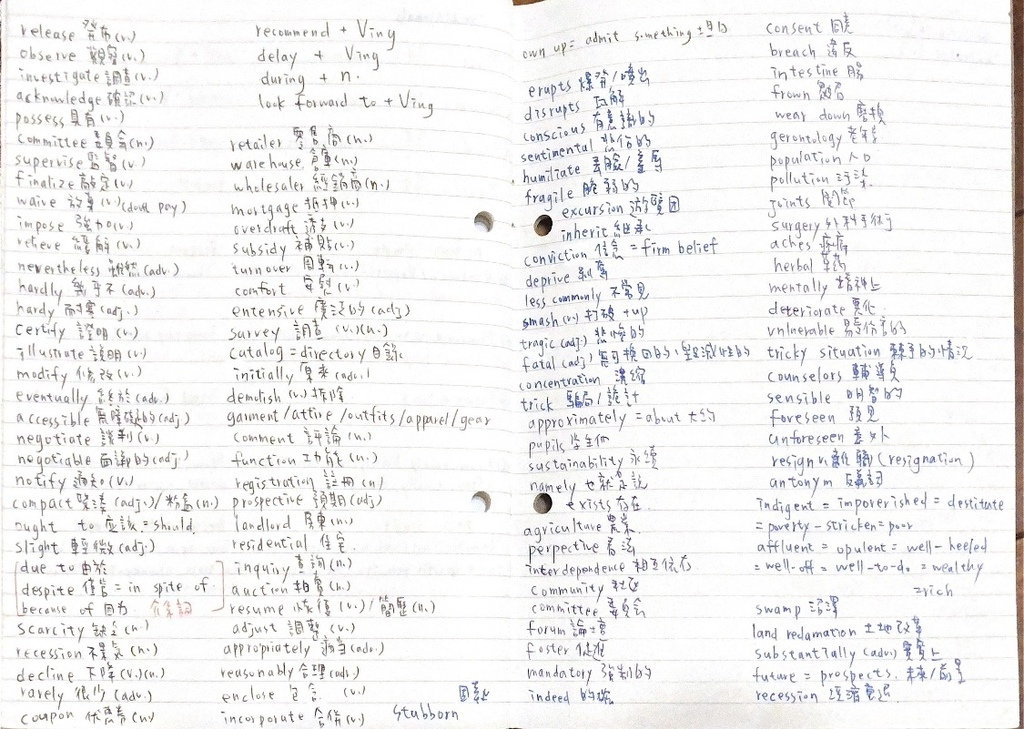 release 發布(v.)
observe 觀察(v.)
investigate 調查(v.)
acknowledge 確認(v.)
possess 具有(v.)
committee 委員會(n.)
supervise 監督(v.)
finalize 敲定(v.)
waive 放棄(v.)(don't pay)
impose 強加(v.)
relieve 緩解(v.)
nevertheless (adv.)
hardly 幾乎不(adv.)
hardy 耐寒(adj.)
certify 證明(v.)
illustrate 說明(v.)
modify 修改(v.)
eventually 終於(adv.)
accessible 無障礙的(adj)
negotiate 談判(v.)
negotiable 面議的(adj)
notify 通知(v.)
compact 緊湊(adj.)/粉盒(n.)
ought to 應該=should
slight 輕微(adj.)
due to 由於
despite 儘管=in spite of
because of 因為 介系詞
scarcity 缺乏(n.)
recession 不景氣(n.)
decline 下降(v.)(n.)
rarely 很少(adv.)
coupon 優惠券(n.)
recommend + Ving
delay + Ving
during + n.
look forward to + Ving
retailer 零售商(n.)
warehouse 倉庫(n.)
wholesaler 經銷商(n.)
mortgage 抵押(n.)
overdraft 透支(n.)
subsidy 補貼(n.)
turnover 周轉(n.)
comfort 安慰(v.)
entensive 廣泛的(adj)
survey 調查(v.)(n.)
catalog=directory 目錄
initially 原來(adv.)
demolish (v.)拆除
garment/attire/outfits/apparel/gear
comment 評論(n.)
function 功能(n.)
registration 註冊(n)
prospective 預期(adj)
landlord 房東(n.)
residential 住宅
inquiry 查詢(n.)
auction 拍賣(n.)
resume 恢復(v.)/簡歷(n.)
adjust 調整(v.)
appropriately 適當(adv.)
reasonably 合理(adv.)
enclose 包含(v.)
incorporate 合併(v.)
固執
stubborn
own up= admit something 坦白
erupts 爆發/噴出
disrupts 瓦解
conscious 有意識的
sentimental 的
humiliate 丟臉/羞辱
fragile 脆弱的
excursion 遊覽團
inherit 繼承
conviction 信念=firm belief
deprive 剝奪
less commonly 不常見
smash(v.) 打破+up
tragic(adj.) 悲慘的
fatal(adj) 無可挽回的,毀滅性的
concentration 濃縮
trick 騙局/詭計
approximately=about 大約
pupils 學生們
sustainability 永續
namely 也就是說
exists 存在
agriculture 農業
perpective 看法
interdependence 相互依存
community 社區
committee 委員會
forum 論壇
foster 促進
mandatory 強制的
indeed 的確
consent 同意
breach 違反
intestine 腸
frown 皺眉
wear down 磨損
gerontology 老年學
population 人口
pollution 污染
joints 關節
surgery 外科手術
aches 疼痛
herbal 草藥
mentally 精神上
deteriorate 惡化
vnlnerable 易受傷的
tricky situation 棘手的情況
counselors 輔導員
sensible 明智的
foreseen 預見
unforeseen 意外
resign v. 離職(resignation)
antonym 反義詞
indigent = impoverished = destitate
=poverty-stricken=poor
affluent = opulent = well-heeled
=well-off = well-to-do = wealthy
=rich
swamp 沼澤
land redamation 土地改革
substantially (adv.) 實質上
future = prospects 未來/前景
recession 經濟衰退